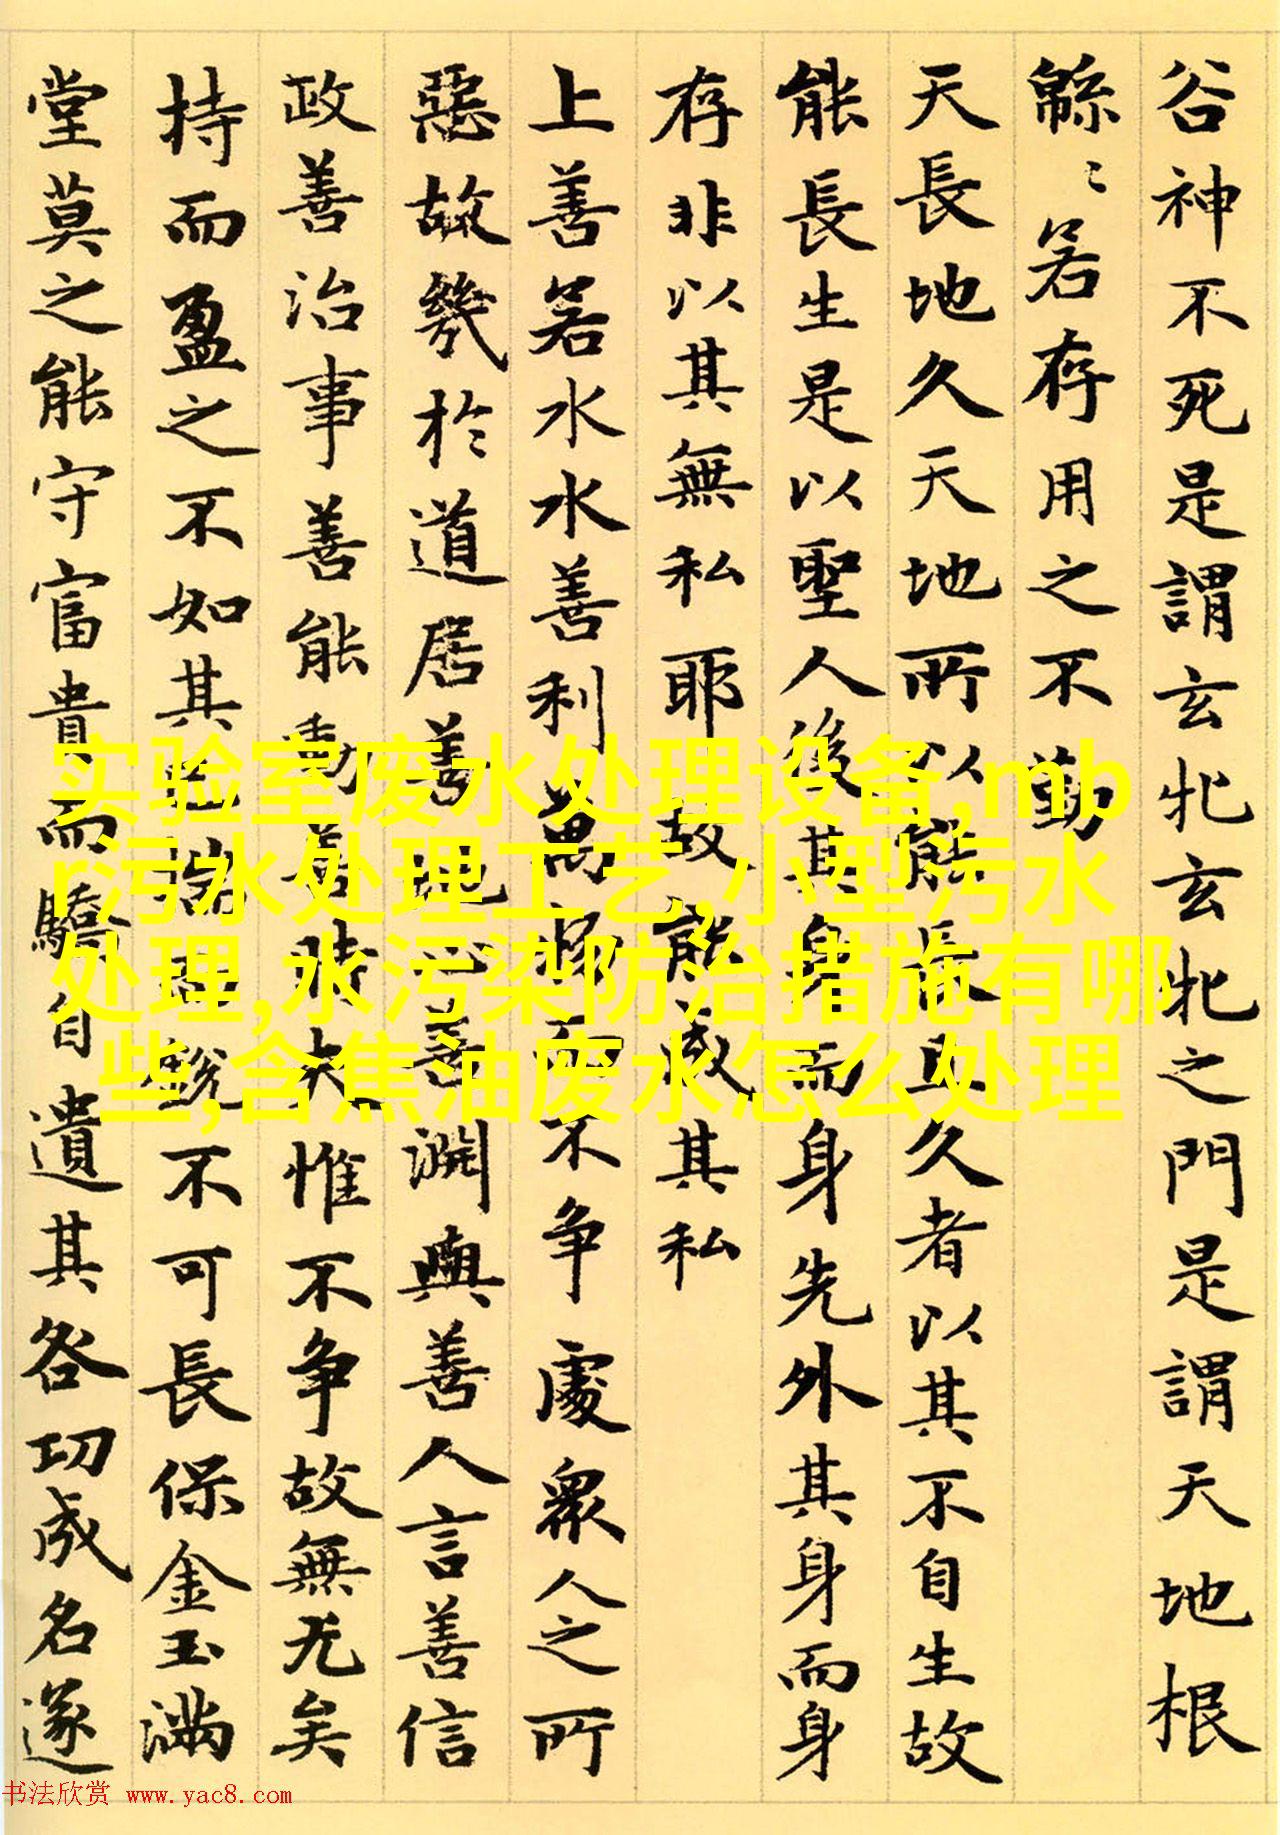 谷神不死是謂玄牝玄牝之門是謂天地根
緜〻若存用之不勤
天長地久天地所以能長且久者以其不自生故
能長生是以聖人後其身而身先外其身而身
存非以其無私耶故能成其私
上善若水水善利萬物而不争處衆人之所
惡故幾於道居善地心善淵與善人言善信
政善治事善能動善時夫惟不争故無尤矣
持而盈之不如其已揣銳不可長保金玉滿
堂莫之能守富貴而驕自遺其咎功成名遂
实验室废水处理设备,mb
r污水处理工艺,小型污水
处理,水污染防治措施有哪
些,含焦油废水怎么处理
书法欣赏 www.yac8.com